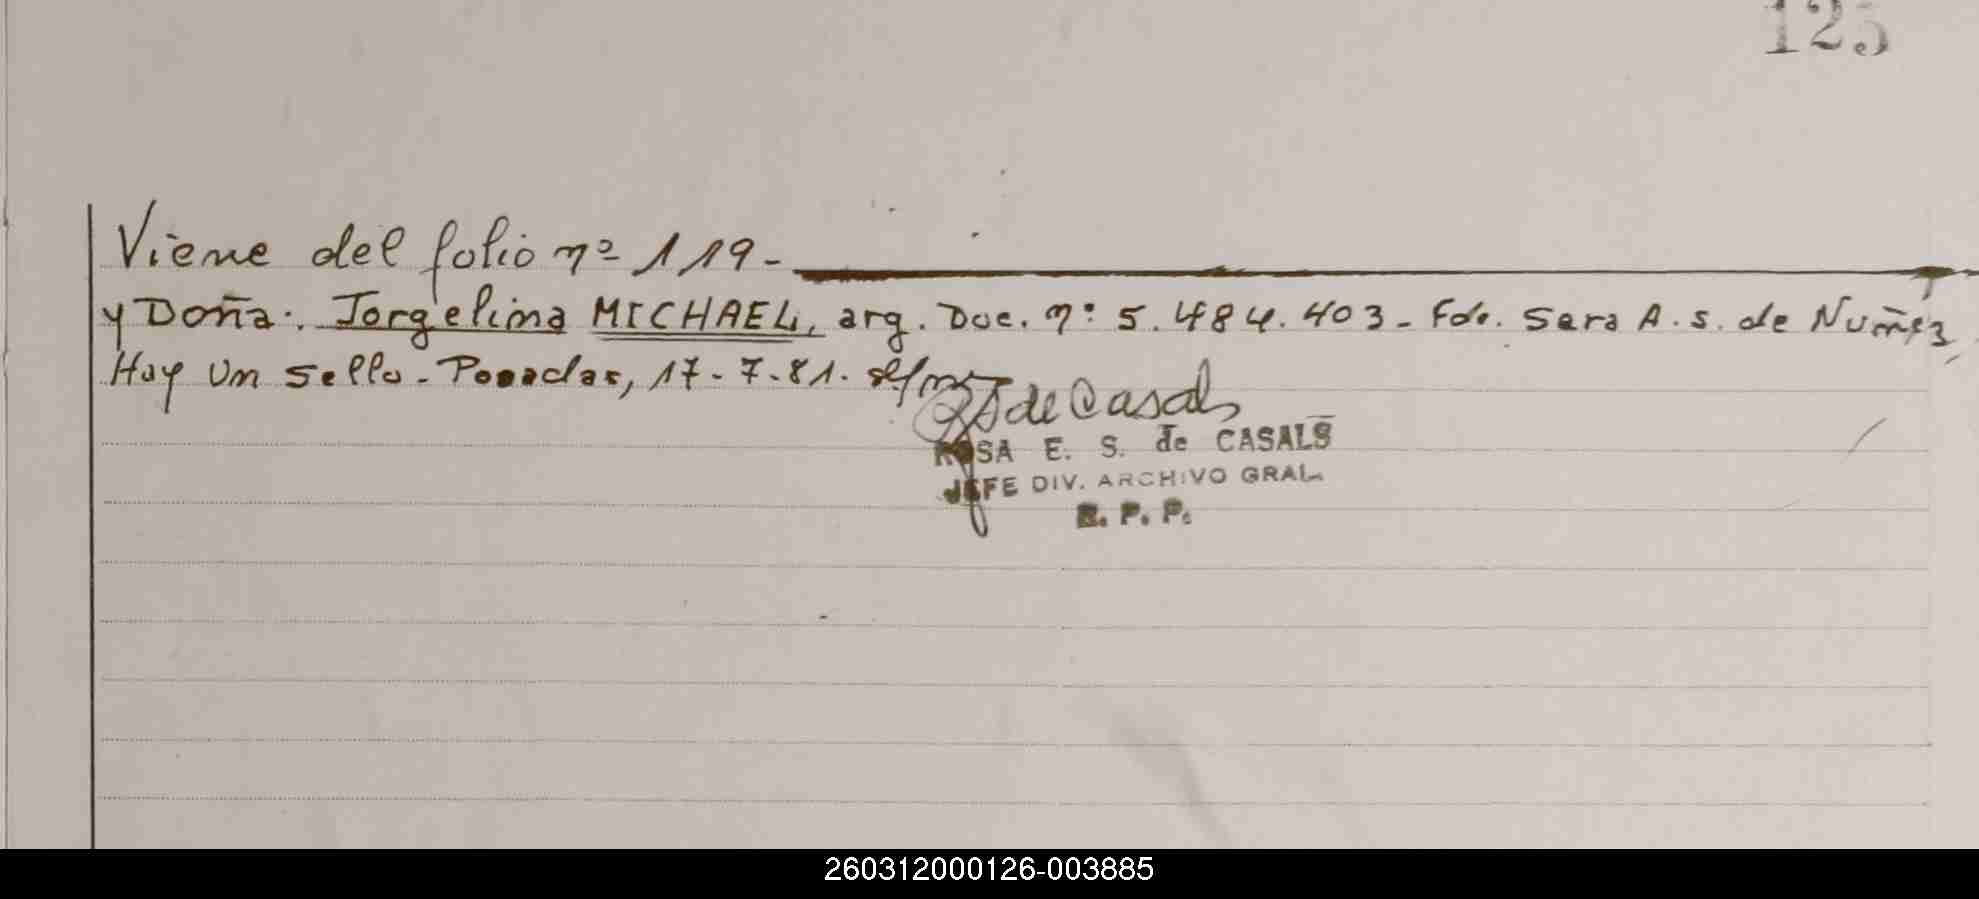 125
Viene del folio nº 119-
y Doña. Jorgelina MICHAEL, arg. Doc. nº 5.484.403- Fdo. Sara A. S. de Nuñez
Hay un sello- Posadas, 17-7-81.
de Casals
ROSA E. S. de CASALS
JEFE DIV. ARCHIVO GRAL.
R. P. P.
260312000126-003885